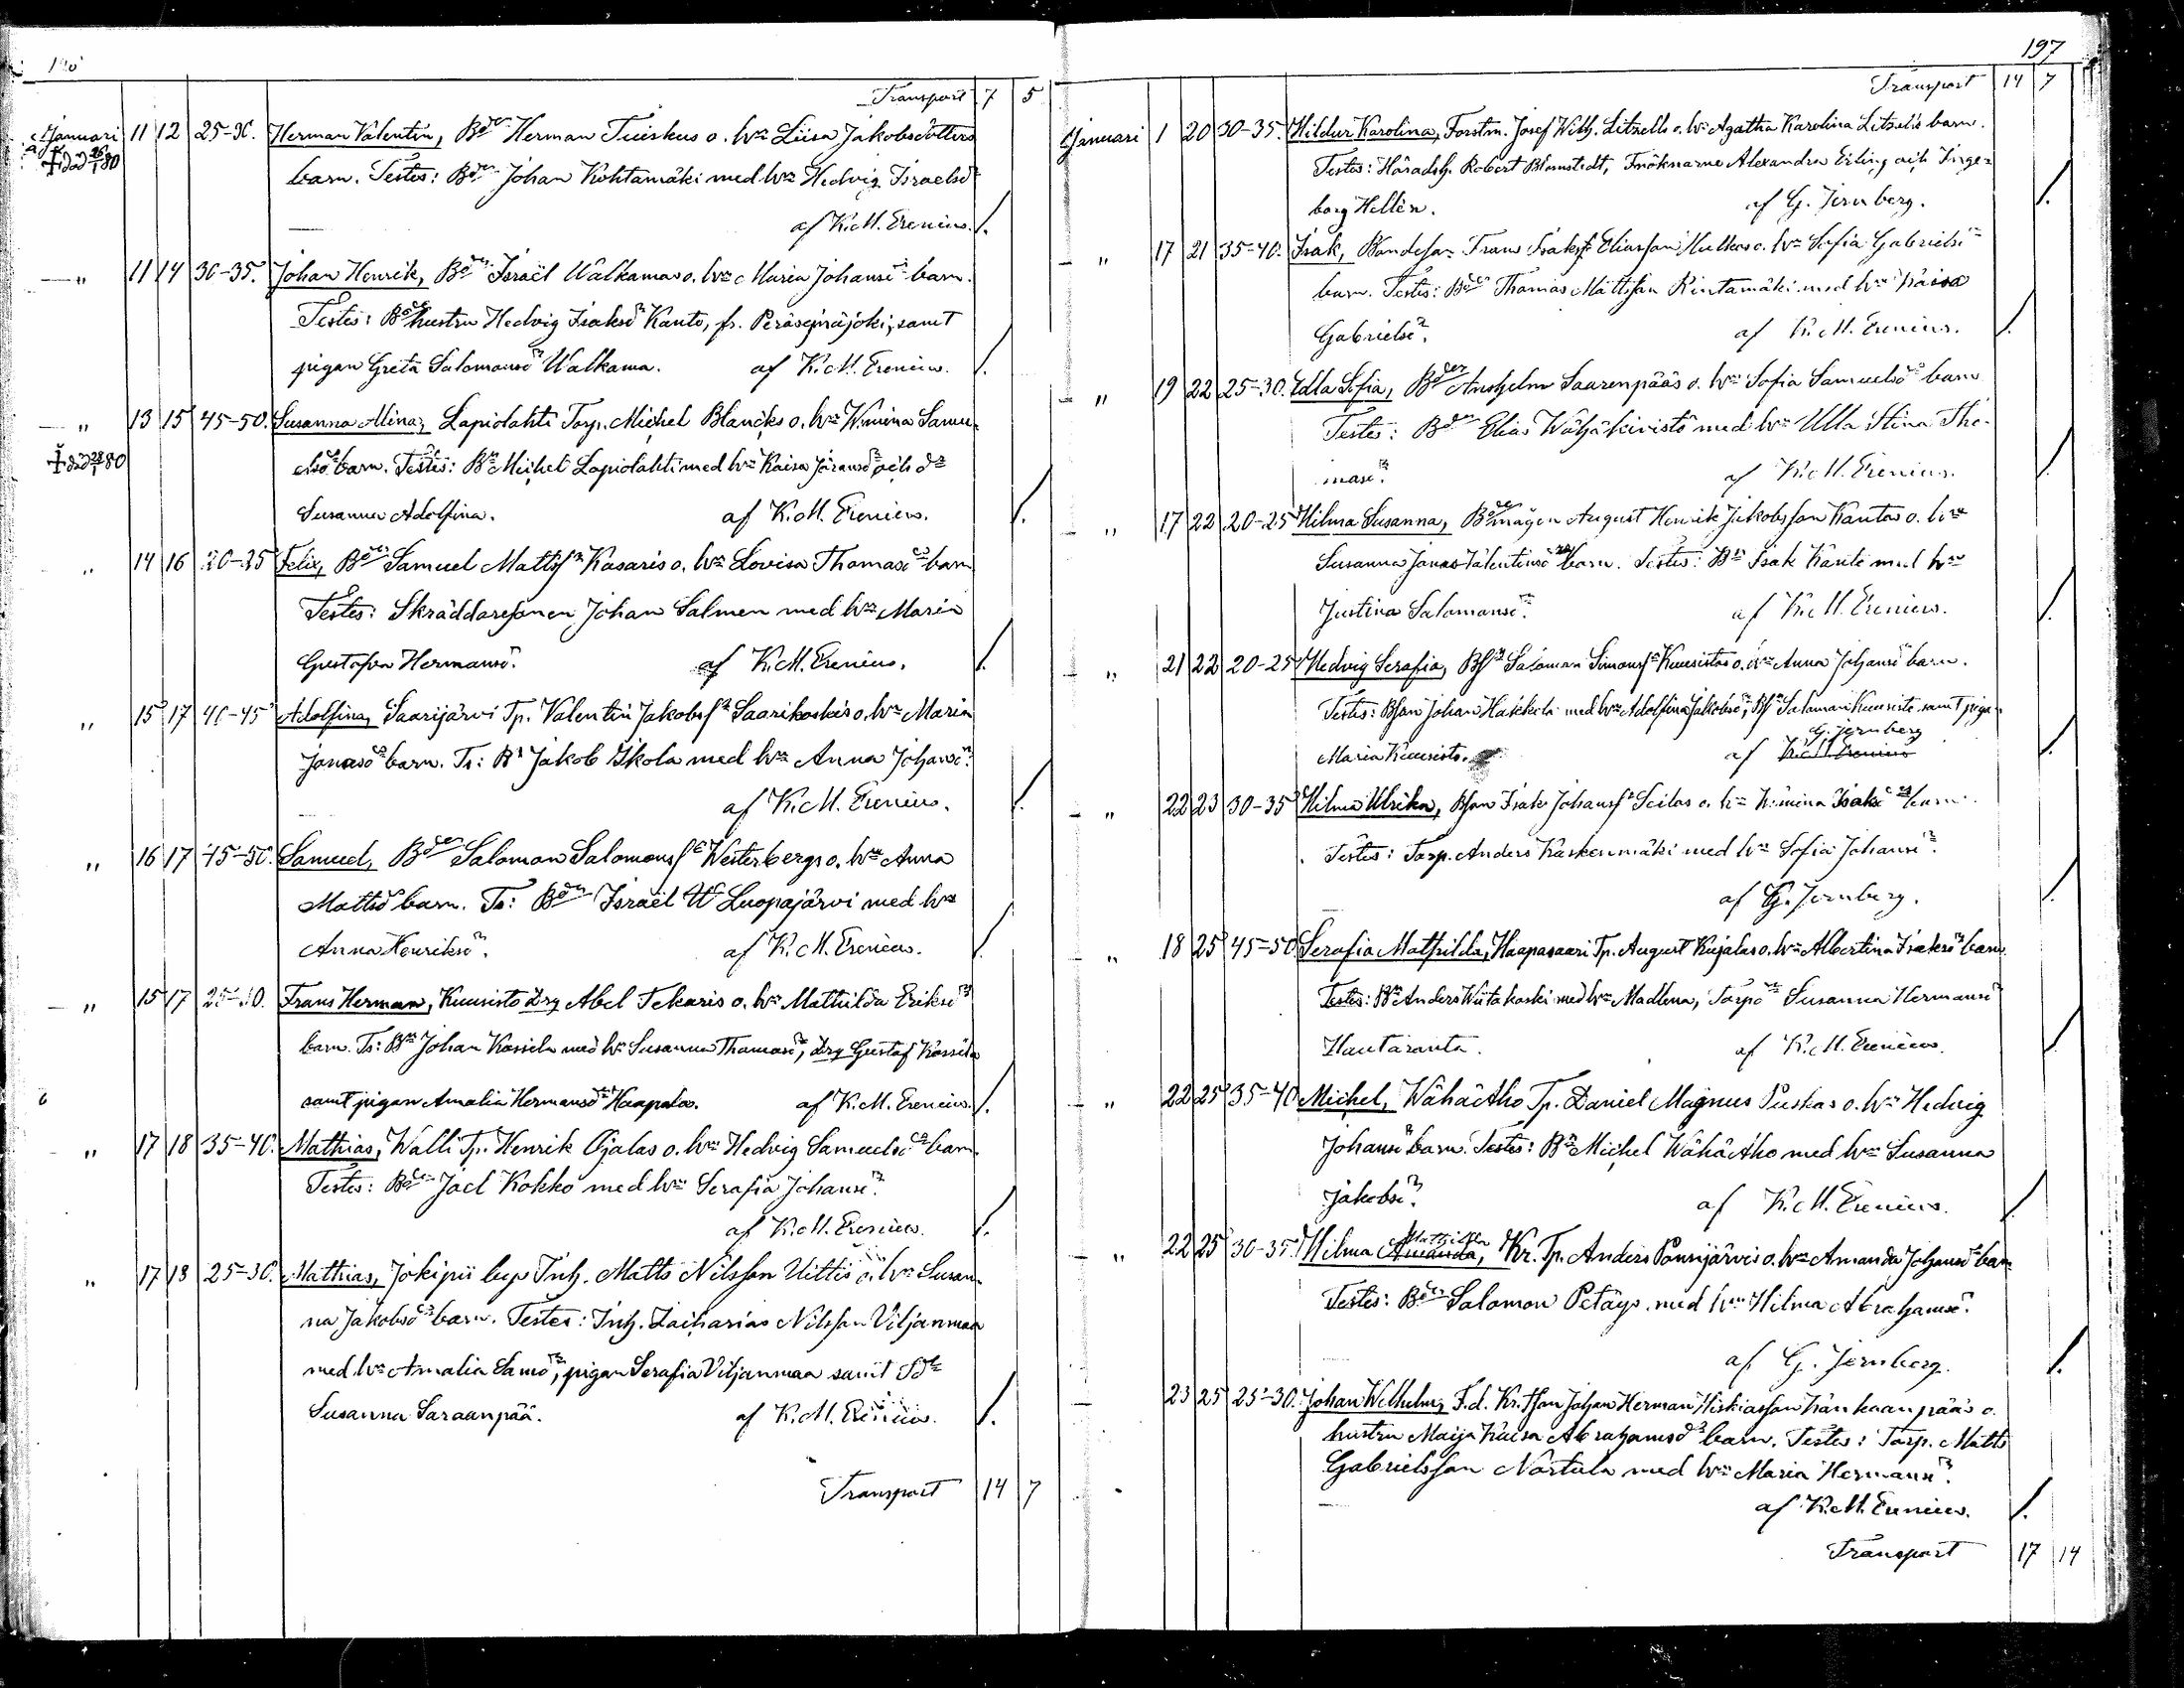 196
Transport 7 5
Januari 11 12 25-30. Herman Valentin, Bden Herman Tuiskus o. hru Liisa Jakobsdotters
† död 26/1 80 barn. Testes: Bden Johan Kohtamäki med hru Hedvig Israelsdr
af K. M. Erenius. /.
—„ 11 14 30-35. Johan Henrik, Bden Israël Walkamas o. hru Maria Johansdr barn.
Testes: Bdehustru Hedvig Isaksdr Kanto, fr. Peräseinäjoki, samt
pigan Greta Salomonsdr Walkama. af K. M. Erenius. /.
—„ 13 15 45-50. Susanna Mina, Lapiolahti Torp. Michel Blancks o. hru W:mina Samu-
† död 28/1 80 elsdr barn. Testes: Bn Michel Lapiolahti med hru Kaisa Göransdr och dr
Susanna Adolfina. af K. M. Erenius. /.
„ 14 16 20-25 Felix, Bden Samuel Mattsfn Kasaris o. hru Lovisa Thomasdr barn
Testes: Skräddaresonen Johan Salmen med hru Maria
Gustafva Hermansdr. af K. M. Erenius. /.
„ 15 17 40-45 Adolfina, Saarijärvi Tp. Valentin Jakobsfn Saarikoskis o. hru Maria
Jonasdr barn. Ts: Bn Jakob Ikola med hru Anna Johansdr.
af K. M. Erenius. /.
„ 16 17 45-50. Samuel, Bden Salomon Salomonsfn Westerbergs o. hru Anna
Mattsdr barn. Ts: Bden Israël W Luopajärvi med hru
Anna Henriksdr. af K. M. Erenius. /.
—„ 15 17 25-30. Frans Herman, Kuusisto Drg Abel Tekaris o. hru Mathilda Eriksdr
barn. Ts: Bn Johan Kassila med hru Susanna Thomasdr, drg Gustaf Kassila
samt pigan Amalia Hermansdr Haapala. af K. M. Erenius. /.
—„ 17 18 35-40. Mathias, Walli Tp. Henrik Ojalas o. hru Hedvig Samuelsdr barn.
Testes: Bden Jael Kokko med hru Serafia Johansdr.
af K. M. Erenius. /.
„ 17 18 25-30. Mathias, Jokipii lego Inh. Matts Nilsson Uittis o. hru Susan-
na Jakobsdr barn. Testes: Inh. Zacharias Nilsson Viljanmaa
med hru Amalia Samdr, pigan Serafia Viljanmaa samt
Susanna Saraanpää. af K. M. Erenius. /.
Transport 14 7
197
Transport 14 7
Januari 1 20 30-35. Hildur Karolina, Forstm. Josef Wilh. Litzells o. hru Agatha Karolina Litzells barn.
Testes: Häradsh. Robert Blomstedt, Fröknarne Alexandra Erling och Inge-
borg Hellén. af G. Jernberg. /.
—„ 17 21 35-40. Isak, Bondeson Frans Isaksf Eliasson Hulkos o. hru Sofia Gabrielsdr
barn. Testes: Bden Thomas Mattsson Rintamäki med hru Kaisa
Gabrielsdr. af K. M. Erenius. /.
—„ 19 22 25-30. Edla Sofia, Bden Anshelm Saarenpääs o. hru Sofia Samuelsdr barn
Testes: Bden Elias Wähäkivistö med hru Ulla Stina Tho-
masdr. af K. M. Erenius. /.
„ 17 22 20-25 Hilma Susanna, Bdemågen August Henrik Jakobsson Kantos o. hru
Susanna Jonas Valentinsdr barn. Testes: Bn Isak Kanto med hru
Justina Salomonsdr. af K. M. Erenius. /.
—„ 21 22 20-25 Hedvig Serafia, Bsn Salomon Simonsfn Kuusistos o. hru Anna Johansdr barn.
Testes: Bson Johan Hakkola med hru Adolfina Jakobsdr, Bsn Salomon Kuusisto samt piga
G. Jernberg
Maria Kuusisto. af K. M. Erenius /.
—„ 22 23 30-35 Hilma Ulrika, Bson Isak Johansfn Seilas o. hru W:mina Isaksdr barn.
Testes: Torp. Anders Kaskenmäki med hru Sofia Johansdr.
af G. Jernberg. /.
—„ 18 25 45-50. Serafia Mathilda, Haapasaari Tp. August Kujalas o. hru Albertina Isaksdr barn.
Testes: Bn Anders Wiitakoski med hru Madlena, Torpdr Susanna Hermansdr
Hautaranta. af K. M. Erenius. /.
—„ 22 25 35-40 Michel, Wähä Aho Tp. Daniel Magnus Puskas o. hru Hedvig
Johansdr barn. Testes: Bn Michel Wähä Aho med hru Susanna
Jakobsdr. af K. M. Erenius. /.
Mathilda
„ 22 25 30-35. Hilma Amanda, Kr. Tp. Anders Pansijärvis o. hru Amanda Johansdr barn
Testes: Bden Salomon Petäys med hru Hilma Abrahamsdr.
af G. Jernberg. /.
— 23 25 25-30. Johan Wilhelm, F.d. Kr. Tson Johan Herman Hiskiasson Kankaanpääs o.
hustru Maija Kaisa Abrahamsdr barn. Testes: Torp. Matts
Gabrielsson Närtula med hru Maria Hermansdr.
af K. M. Erenius. /.
Transport 17 14